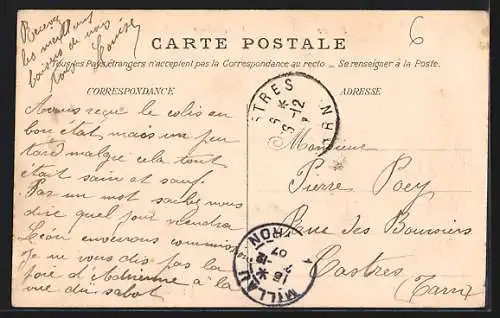 Recevez
les meilleurs
baisers de nous
tous Louise
6
CARTE POSTALE
Tous les Pays étrangers n'acceptent pas la Correspondance au recto _ Se renseigner à la Poste.
CORRESPONDANCE
ADRESSE
Avons reçu le colis en
bon etat mais un peu
tard malgré cela tout
était sain et sauf.
Par un mot sachez nous
dire quel jour viendra
Léon enverrons commission
Je ne vous dis pas la
joie d'Adrienne à la
vue du sabot
CASTRES
Monsieur
Pierre Poey
Rue des Boursiers
Castres
(Tarn)
MILLAU
AVEYRON